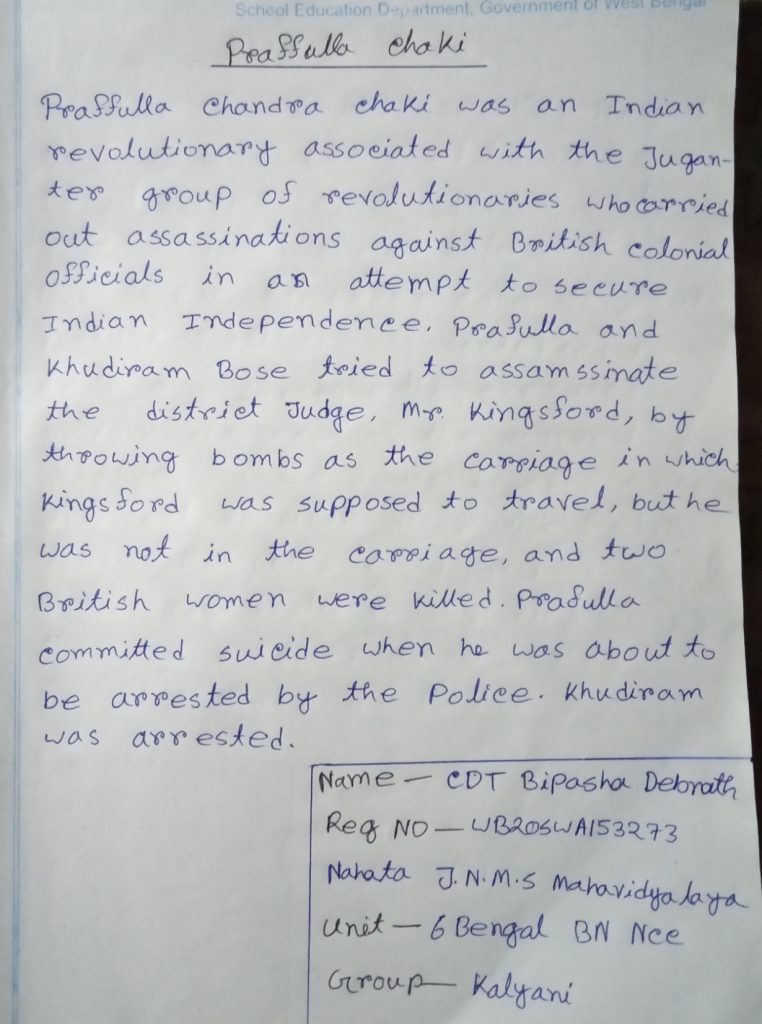 School Education Department, Government of West Bengal
Praffulla chaki
Praffulla Chandra chaki was an Indian
revolutionary associated with the Jugan-
ter group of revolutionaries who carried
out assassinations against British colonial
officials in an attempt to secure
Indian Independence. Prafulla and
Khudiram Bose tried to assamssinate
the district Judge, Mr. Kingsford, by
throwing bombs as the carriage in which
Kingsford was supposed to travel, but he
was not in the carriage, and two
British women were killed. Prafulla
committed suicide when he was about to
be arrested by the Police. Khudiram
was arrested.
Name — CDT Bipasha Debnath
Reg NO — WB20SWA153273
Nahata J.N.M.S Mahavidyalaya
Unit — 6 Bengal BN Ncc
Group — Kalyani